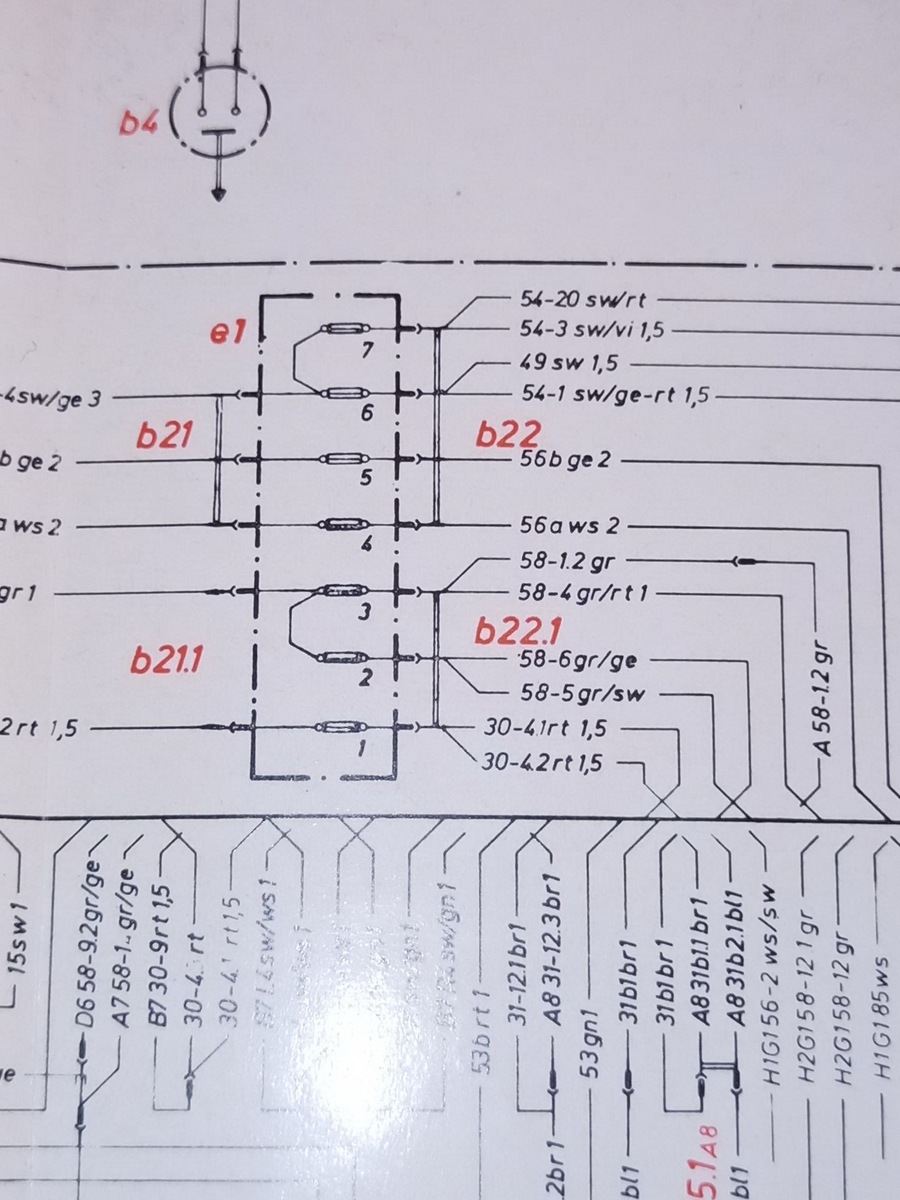 b4
e1
54-20 sw/rt
54-3 sw/vi 1,5
7
49 sw 1,5
-4sw/ge 3
54-1 sw/ge-rt 1,5
6
b21
b22
b ge 2
56b ge 2
5
a ws 2
56a ws 2
4
58-1.2 gr
gr 1
58-4 gr/rt 1
3
b21.1
b22.1
58-6gr/ge
2
58-5gr/sw
2 rt 1,5
30-4.1rt 1,5
1
30-4.2rt 1,5
A 58-1.2 gr
15sw1
D6 58-9.2gr/ge
A7 58-1.. gr/ge
B7 30-9rt 1,5
30-4. rt
30-4.1 rt 1,5
53b rt 1
31-12.1br1
A8 31-12.3 br1
53gn1
31b1br1
31b1br1
A8 31b1.1 br1
A8 31b2.1bl1
H1G156-2 ws/sw
H2G158-12.1 gr
H2G158-12gr
H1G185ws
.2br1
bl1
5.1 A8
bl1